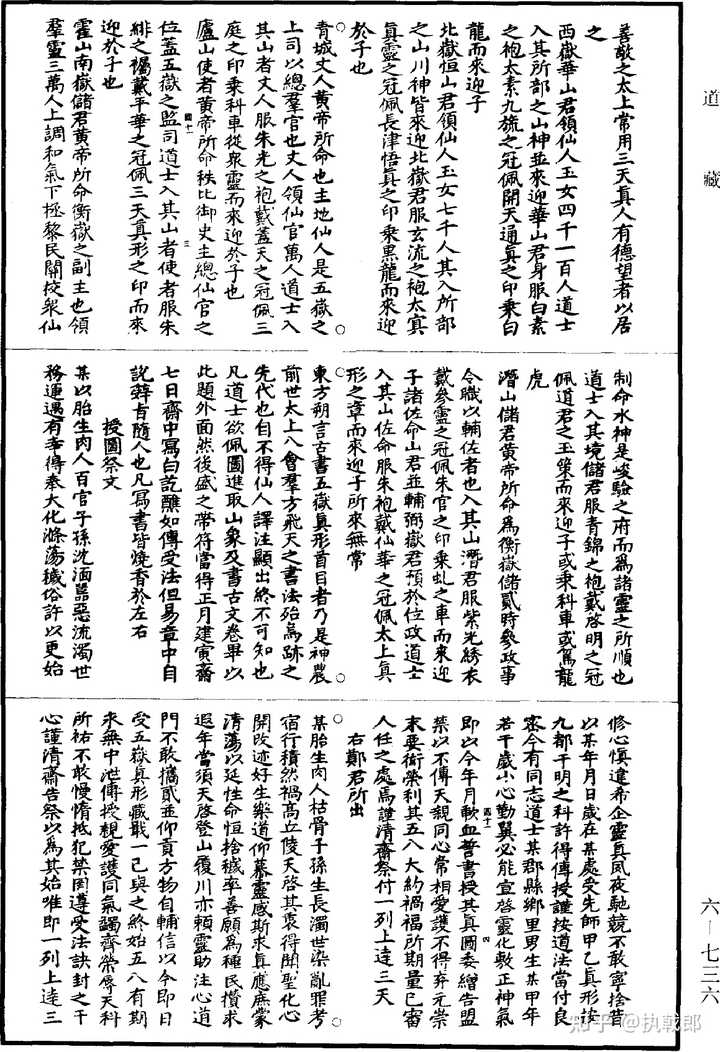 道藏
善敬之太上常用三天真人有德望者以居
之
西嶽華山君領仙人玉女四千一百人道士
入其所部之山神並來迎華山君身服白素
之袍太素九旒之冠佩開天通真之印乘白
龍而來迎子
北嶽恒山君領仙人玉女七千人其入所部
之山川神皆來迎北嶽君服玄流之袍太冥
真靈之冠佩長津悟真之印乘黑龍而來迎
於子也
青城丈人黃帝所命也主地仙人是五嶽之
上司以總羣官也丈人領仙官萬人道士入
其山者丈人服朱光之袍戴蓋天之冠佩三
庭之印乘科車從衆靈而來迎於子也
廬山使者黃帝所命秩比御史主總仙官之
位蓋五嶽之監司道士入其山者使者服朱
緋之褐戴平華之冠佩三天真形之印而來
迎於子也
霍山南嶽儲君黃帝所命衡嶽之副主也領
羣靈三萬人上調和氣下拯黎民關校衆仙
制命水神是峻驗之府而為諸靈之所順也
道士入其境儲君服青錦之袍戴啓明之冠
佩道君之玉策而來迎子或乘科車或駕龍
虎
潛山儲君黃帝所命為衡嶽儲貳時參政事
令職以輔佐者也入其山潛君服紫光綉衣
戴參靈之冠佩朱官之印乘虬之車而來迎
子諸佐命山君並輔弼嶽君預於位政道士
入其山佐命服朱袍戴仙華之冠佩太上真
形之章而來迎子所來無常
東方朔言古書五嶽真形首目者乃是神農
前世太上八會羣方飛天之書法殆鳥跡之
先代也自不得仙人譯注顯出終不可知也
凡道士欲佩圖進取山象及書古文卷畢以
此題外面然後盛之帶符當得正月建寅齋
七日齋中寫白訖醮如傳受法但易章中自
說辭旨隨人也凡寫書皆燒香於左右
授圖祭文
某以胎生肉人百官子孫沈湎囂惡流濁世
務運遇有幸得奉大化滌蕩穢俗許以更始
修心慎違希企靈真夙夜馳競不敢寧捨昔
以某年月日歲在某處受先師甲乙真形按
九都干明之科許得傳授謹按道法當付良
密今有同志道士某郡縣鄉里男生某甲年
若干歲小心勤翼必能宣啓靈化敷正神氣
即以今年月歃血誓書授其真圖委繒告盟
禁以不傳天親同心常相愛護不得弃元崇
末要衒榮利其五八大約禍福所期量已審
人任之處焉謹清齋祭付一列上達三天
右鄭君所出
某胎生肉人枯骨子孫生長濁世染亂罪考
宿行積然禍高丘陵天啓其衷得聞聖化心
開改迹好生樂道仰慕靈感斯求真應庶蒙
清蕩以延性命恒捨穢率善願為種民攢求
遐年當須天啓登山履川亦賴靈助注心道
門不敢攜貳並仰貢方物自輔信以今即日
受五嶽真形藏戢一己與之終始五八有期
求無中泄傳授親愛護同氣蠲齊榮辱天科
所祐不敢慢惰抵犯禁罔遵受法訣封之干
心謹清齋告祭以為其始唯即一列上達三
六一七三六
知乎 @执戟郎